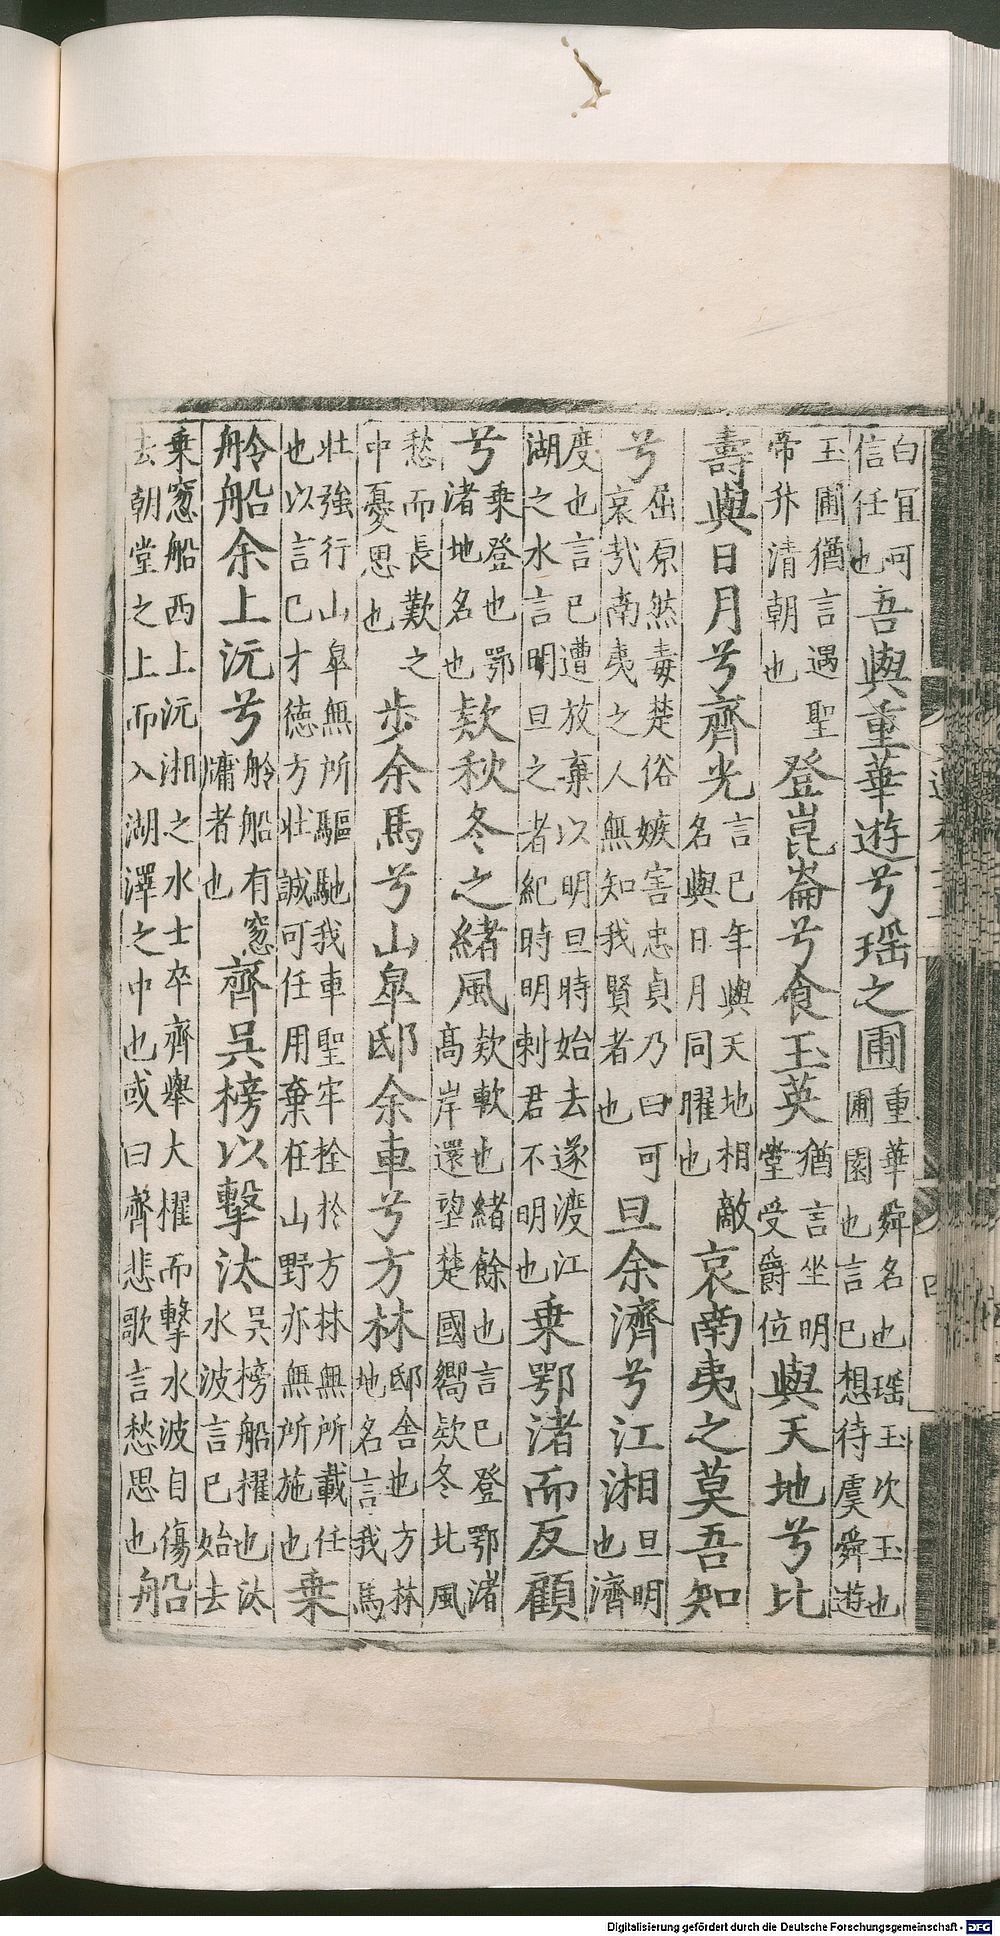 白冝可信任也吾與重華遊兮瑶之圃重華舜名也瑶玉次玉也圃園也言巳想待虞舜遊
玉圃猶言遇聖帝升清朝也登崑崙兮食玉英猶言坐明堂受爵位與天地兮比
壽與日月兮齊光言巳年與天地相敵名與日月同曜也哀南夷之莫吾知
兮屈原然毒楚俗嫉害忠貞乃曰可哀㢤南夷之人無知我賢者也旦余濟兮江湘旦明也濟
度也言巳遭放棄以明旦時始去遂渡江湖之水言明旦之者紀時明刺君不明也乗鄂渚而反顧
兮乗登也鄂渚地名也欵秋冬之緒風欵軟也緒餘也言巳登鄂渚高岸還望楚國嚮欵冬北風
愁而長歎之中憂思也步余馬兮山臯邸余車兮方林邸舍也方林地名言我馬
壯強行山臯無所驅馳我車聖牢拴於方林無所載任也以言巳才徳方壯誠可任用棄在山野亦無所施也乗
舲船余上沅兮舲船有窓牗者也齊吳榜以擊汰吳榜船擢也汰水波言巳始去
乗窓船西上沅湘之水士卒齊舉大櫂而擊水波自傷去朝堂之上而入湖澤之中也或曰齊悲歌言愁思也船
Digitalisierung gefördert durch die Deutsche Forschungsgemeinschaft - DFG